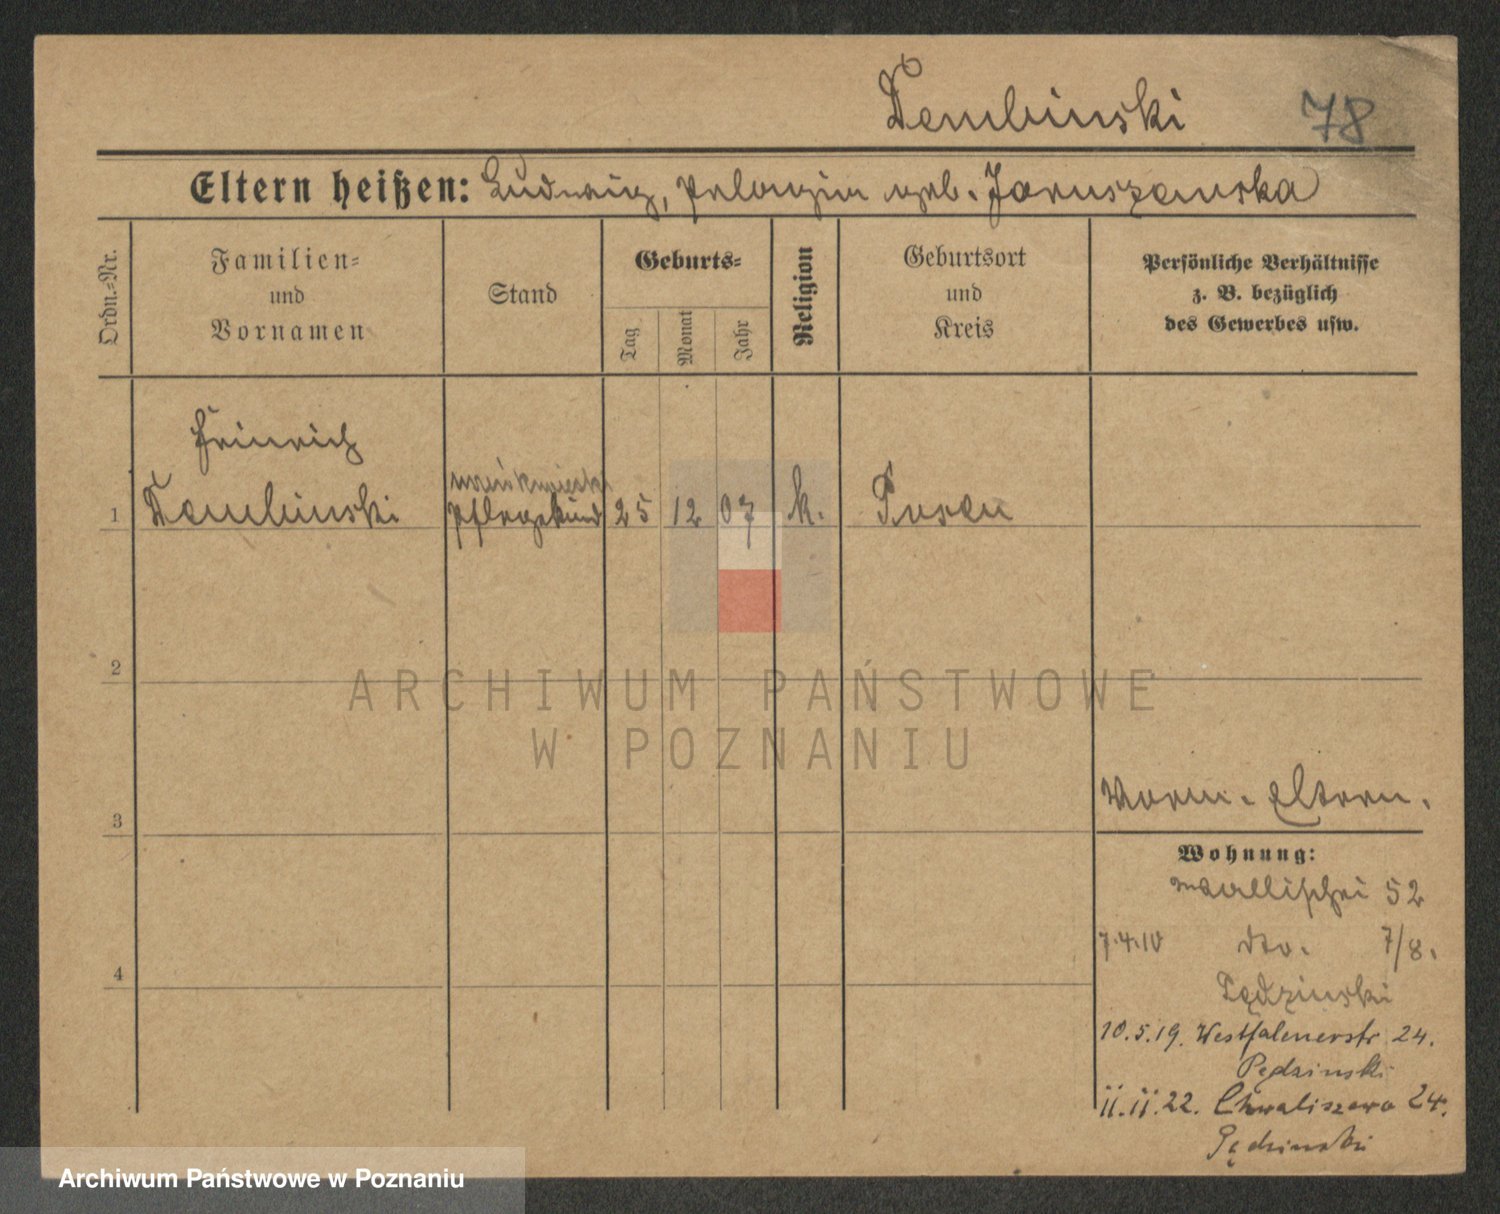 Dembinski 78
Eltern heißen: Ludwig, Pelagia geb. Jaruszewska
Ordn.-Nr.
Familien-
und
Vornamen
Stand
Geburts-
Tag
Monat
Jahr
Religion
Geburtsort
und
Kreis
Persönliche Verhältnisse
z. B. bezüglich
des Gewerbes usw.
Heinrich
1 Dembinski Pflegekind 25 12 07 k. Posen
2
3
4
Vorm. Eltern.
Wohnung:
Wallischei 52
7.4.10 dto. 7/8.
Pędzinski
10.5.19. Westfalenerstr 24.
Pędzinski
11.11.22. Chwaliszewo 24.
Pędzinski
ARCHIWUM PAŃSTWOWE
W POZNANIU
Archiwum Państwowe w Poznaniu